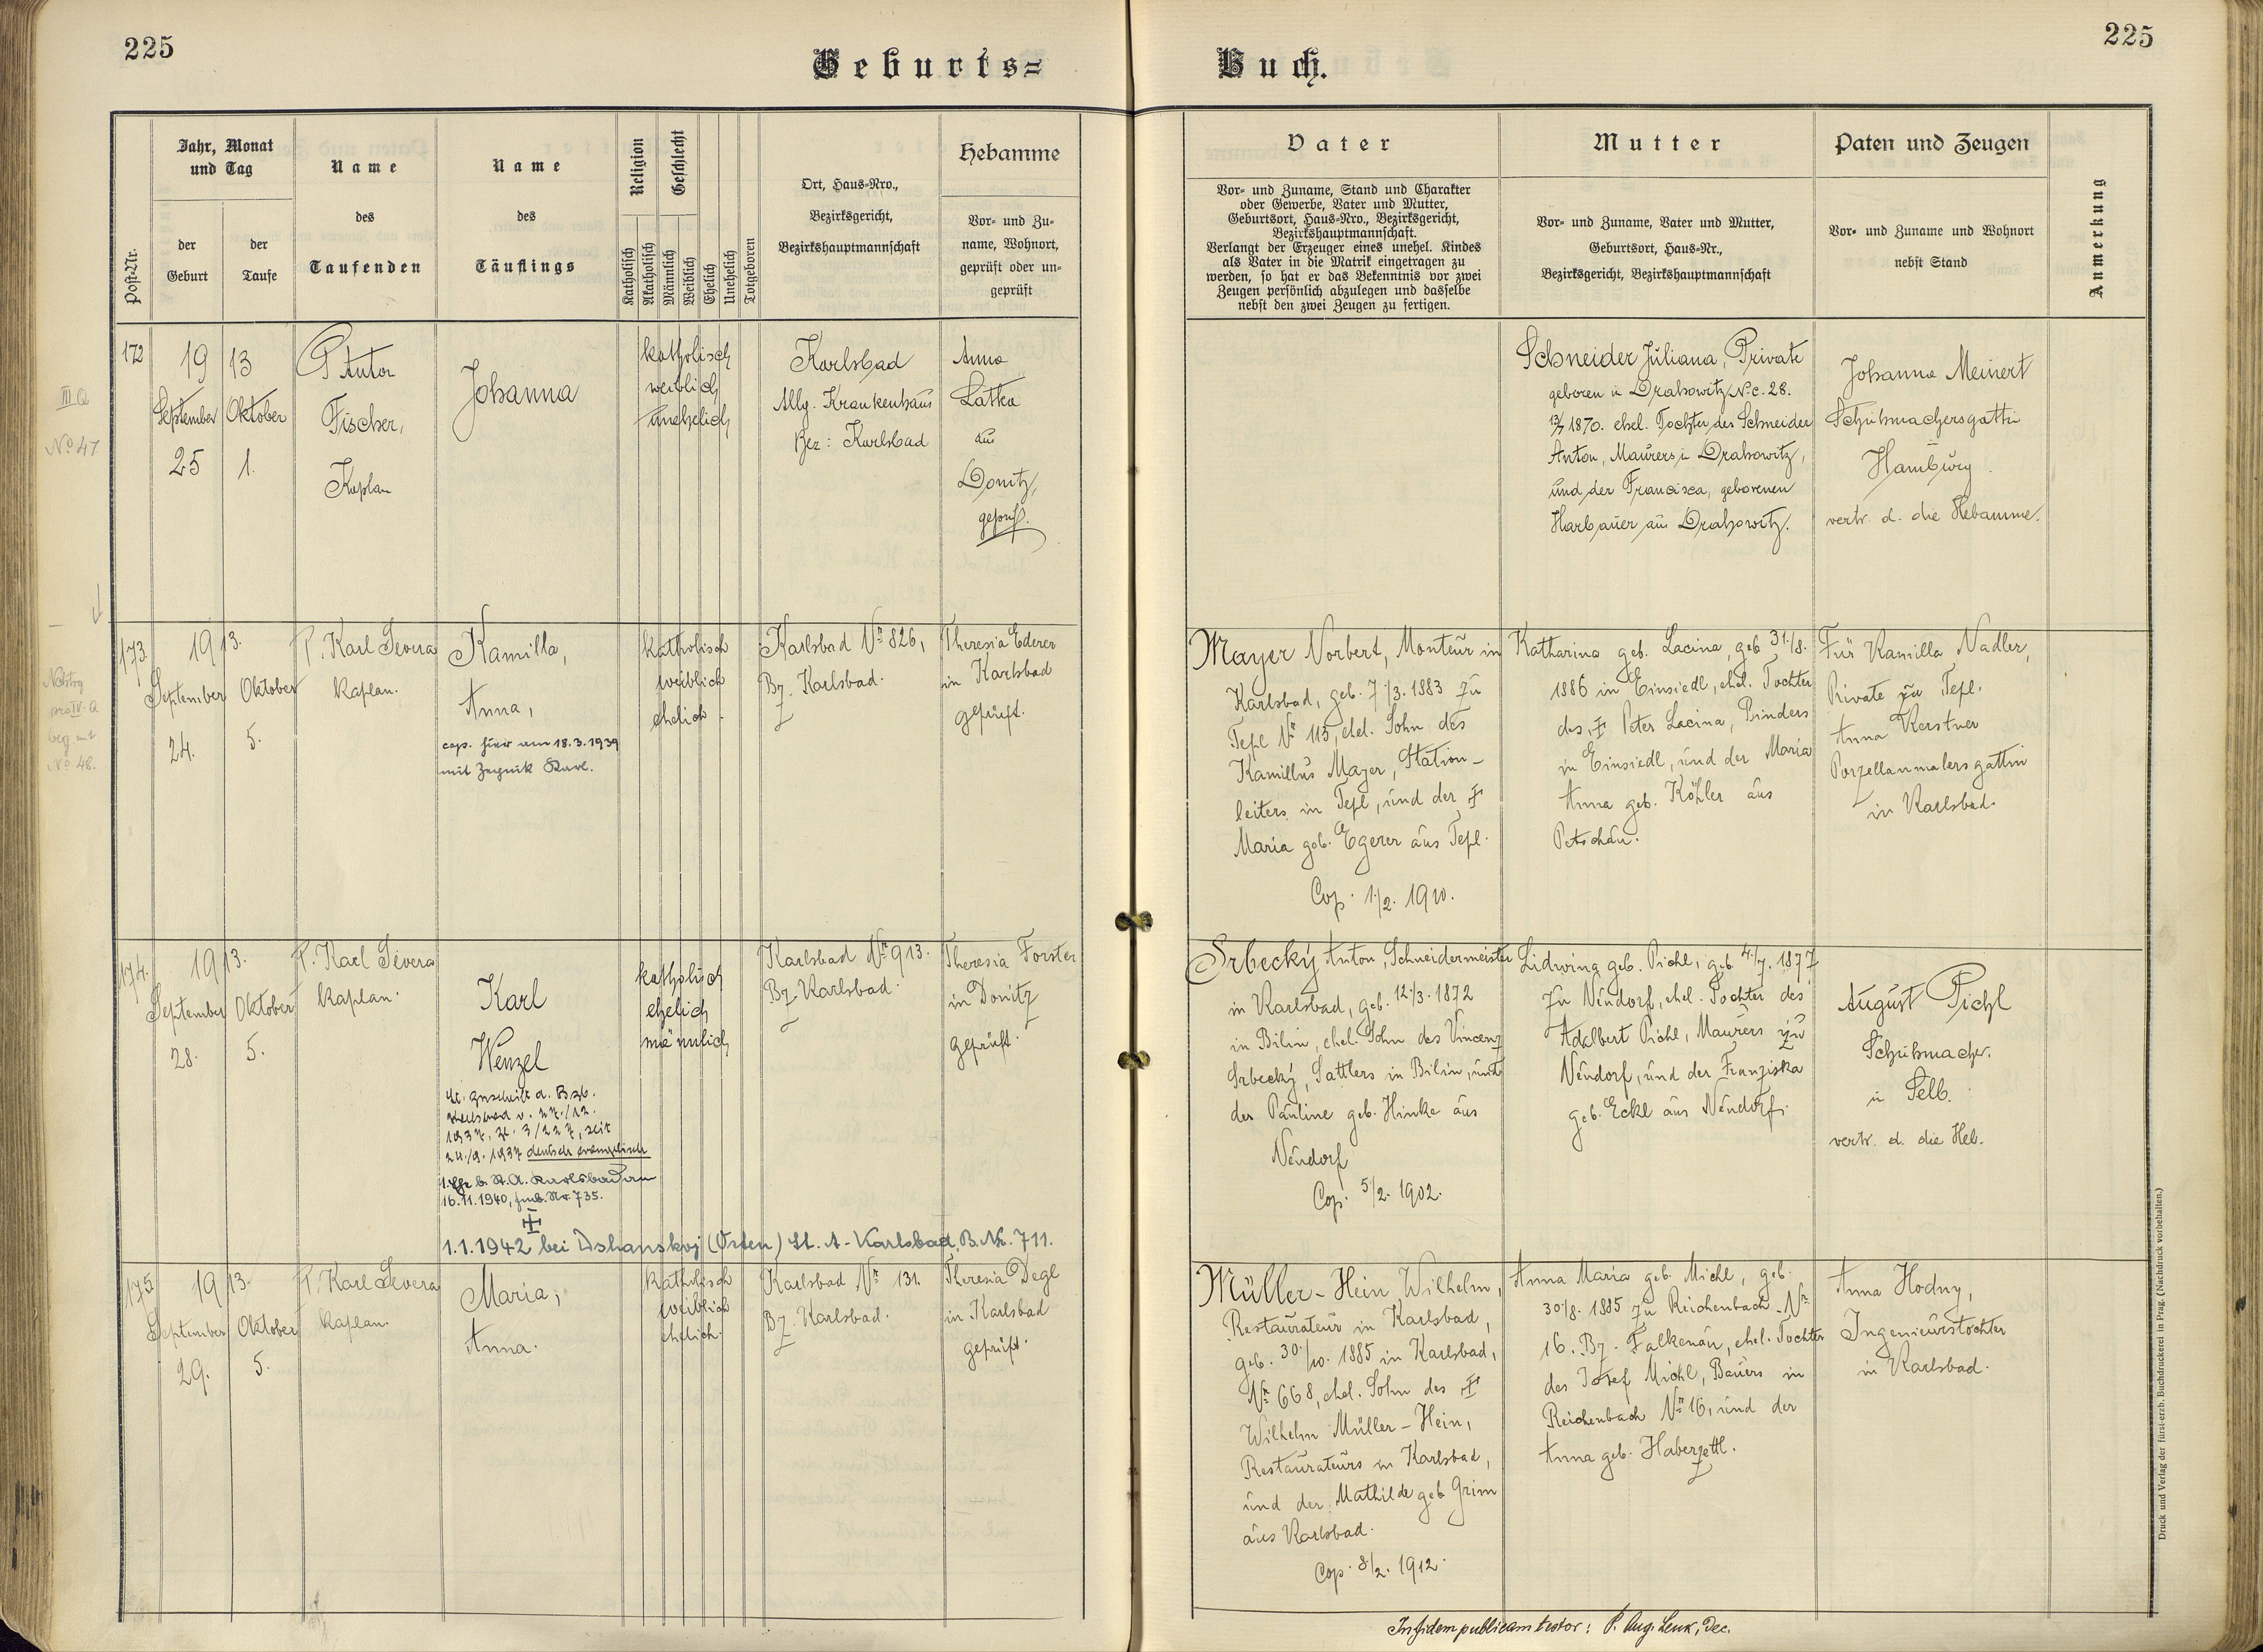 225
Geburts=
Buch.
225
Post-Nr.
Jahr, Monat
und Tag
der
Geburt
der
Taufe
Name
des
Taufenden
Name
des
Täuflings
Religion
Geschlecht
Katholisch
Akatholisch
Männlich
Weiblich
Ehelich
Unehelich
Totgeboren
Ort, Haus=Nro.,
Bezirksgericht,
Bezirkshauptmannschaft
Hebamme
Vor= und Zu=
name, Wohnort,
geprüft oder un=
geprüft
Vater
Vor= und Zuname, Stand und Charakter
oder Gewerbe, Vater und Mutter,
Geburtsort, Haus=Nro., Bezirksgericht,
Bezirkshauptmannschaft.
Verlangt der Erzeuger eines unehel. Kindes
als Vater in die Matrik eingetragen zu
werden, so hat er das Bekenntnis vor zwei
Zeugen persönlich abzulegen und dasselbe
nebst den zwei Zeugen zu fertigen.
Mutter
Vor= und Zuname, Vater und Mutter,
Geburtsort, Haus=Nr.,
Bezirksgericht, Bezirkshauptmannschaft
Paten und Zeugen
Vor= und Zuname und Wohnort
nebst Stand
Anmerkung
III Q
No 47
172
19 13
September Oktober
25 1.
P Anton
Fischer,
Kaplan
Johanna
katholisch
weiblich
unehelich
Karlsbad
Allg. Krankenhaus
Bez: Karlsbad
Anna
Latka
aus
Donitz,
geprüft.
Schneider Juliana, Private
geboren in Drahowitz Nc. 28.
1870. ehel. Tochter des Schneider
Anton, Maurers in Drahowitz,
und der Francisca, geborenen
Harbauer aus Drahowitz.
Johanna Meinert
Schuhmachersgattin
Hamburg.
vertr. d. die Hebamme.
No 48.
173.
19 13.
September Oktober
24. 5.
P. Karl Severa
Kaplan.
Kamilla,
Anna,
cop. hier am 18.3.1939
mit Karl.
katholisch
weiblich
ehelich.
Karlsbad Nr 826,
Bz. Karlsbad.
Theresia Ederer
in Karlsbad
geprüft.
Mayer Norbert, Monteur in
Karlsbad, geb. 7./3. 1883 zu
Tepl Nr 115, ehel. Sohn des
Kamillus Mayer, Station-
leiters in Tepl, und der †
Maria geb. Egerer aus Tepl.
Cop. 1./2. 1910.
Katharina geb. Lacina, geb 31./8.
1886 in Einsiedl, ehel. Tochter
des † Peter Lacina, Binders
in Einsiedl, und der Maria
Anna geb. Köhler aus
Petschau.
Für Kamilla Nadler,
Private zu Tepl.
Anna Kerstner
Porzellanmalersgattin
in Karlsbad.
174.
19 13.
September Oktober
28. 5.
P. Karl Severa
Kaplan.
Karl
Wenzel
1937, Zl. 3/227, seit
24./9. 1937 deutsch evangelisch
1. Ehe b. St.A. Karlsbad am
16.11.1940, Nr. 735.
†
1.1.1942 bei Dshanskoj (Osten) St. A - Karlsbad, B. Nr. 711.
katholisch
ehelich
männlich
Karlsbad Nr 913.
Bz. Karlsbad.
Theresia Forster
in Donitz
geprüft.
Srbecky Anton, Schneidermeister
in Karlsbad, geb. 12./3. 1872
in Bilin, ehel. Sohn des Vincenz
Srbecky, Sattlers in Bilin, und
der Pauline geb. Hinke aus
Neudorf
Cop. 5./2. 1902.
Lidwina geb. Pichl, geb. 4./7. 1877
zu Neudorf, ehel. Tochter des
Adalbert Pichl, Maurers zu
Neudorf, und der Franziska
geb. Eckl aus Neudorf.
August Pichl
Schuhmacher.
in Selb.
vertr. d. die Heb.
175.
19 13.
September Oktober
29. 5.
P. Karl Severa
Kaplan.
Maria,
Anna.
katholisch
weiblich
ehelich.
Karlsbad Nr 131.
Bz. Karlsbad.
Theresia Degl
in Karlsbad
geprüft.
Müller - Hein, Wilhelm,
Restaurateur in Karlsbad,
geb. 30./10. 1885 in Karlsbad,
Nr 668, ehel. Sohn des †
Wilhelm Müller - Hein,
Restaurateurs in Karlsbad,
und der Mathilde geb Grim
aus Karlsbad.
Cop. 8./2. 1912.
Anna Maria geb. Michl, geb.
30./8. 1885 zu Reichenbach Nr
16. Bz. Falkenau, ehel. Tochter
des Josef Michl, Bauers in
Reichenbach Nr 16, und der
Anna geb. Haberzettl.
Anna Hodny,
Ingenieurstochter
in Karlsbad.
In fidem publicam testor: P. Aug. Lenk, Dec.
Druck und Verlag der fürst-erzb. Buchdruckerei in Prag. (Nachdruck vorbehalten.)